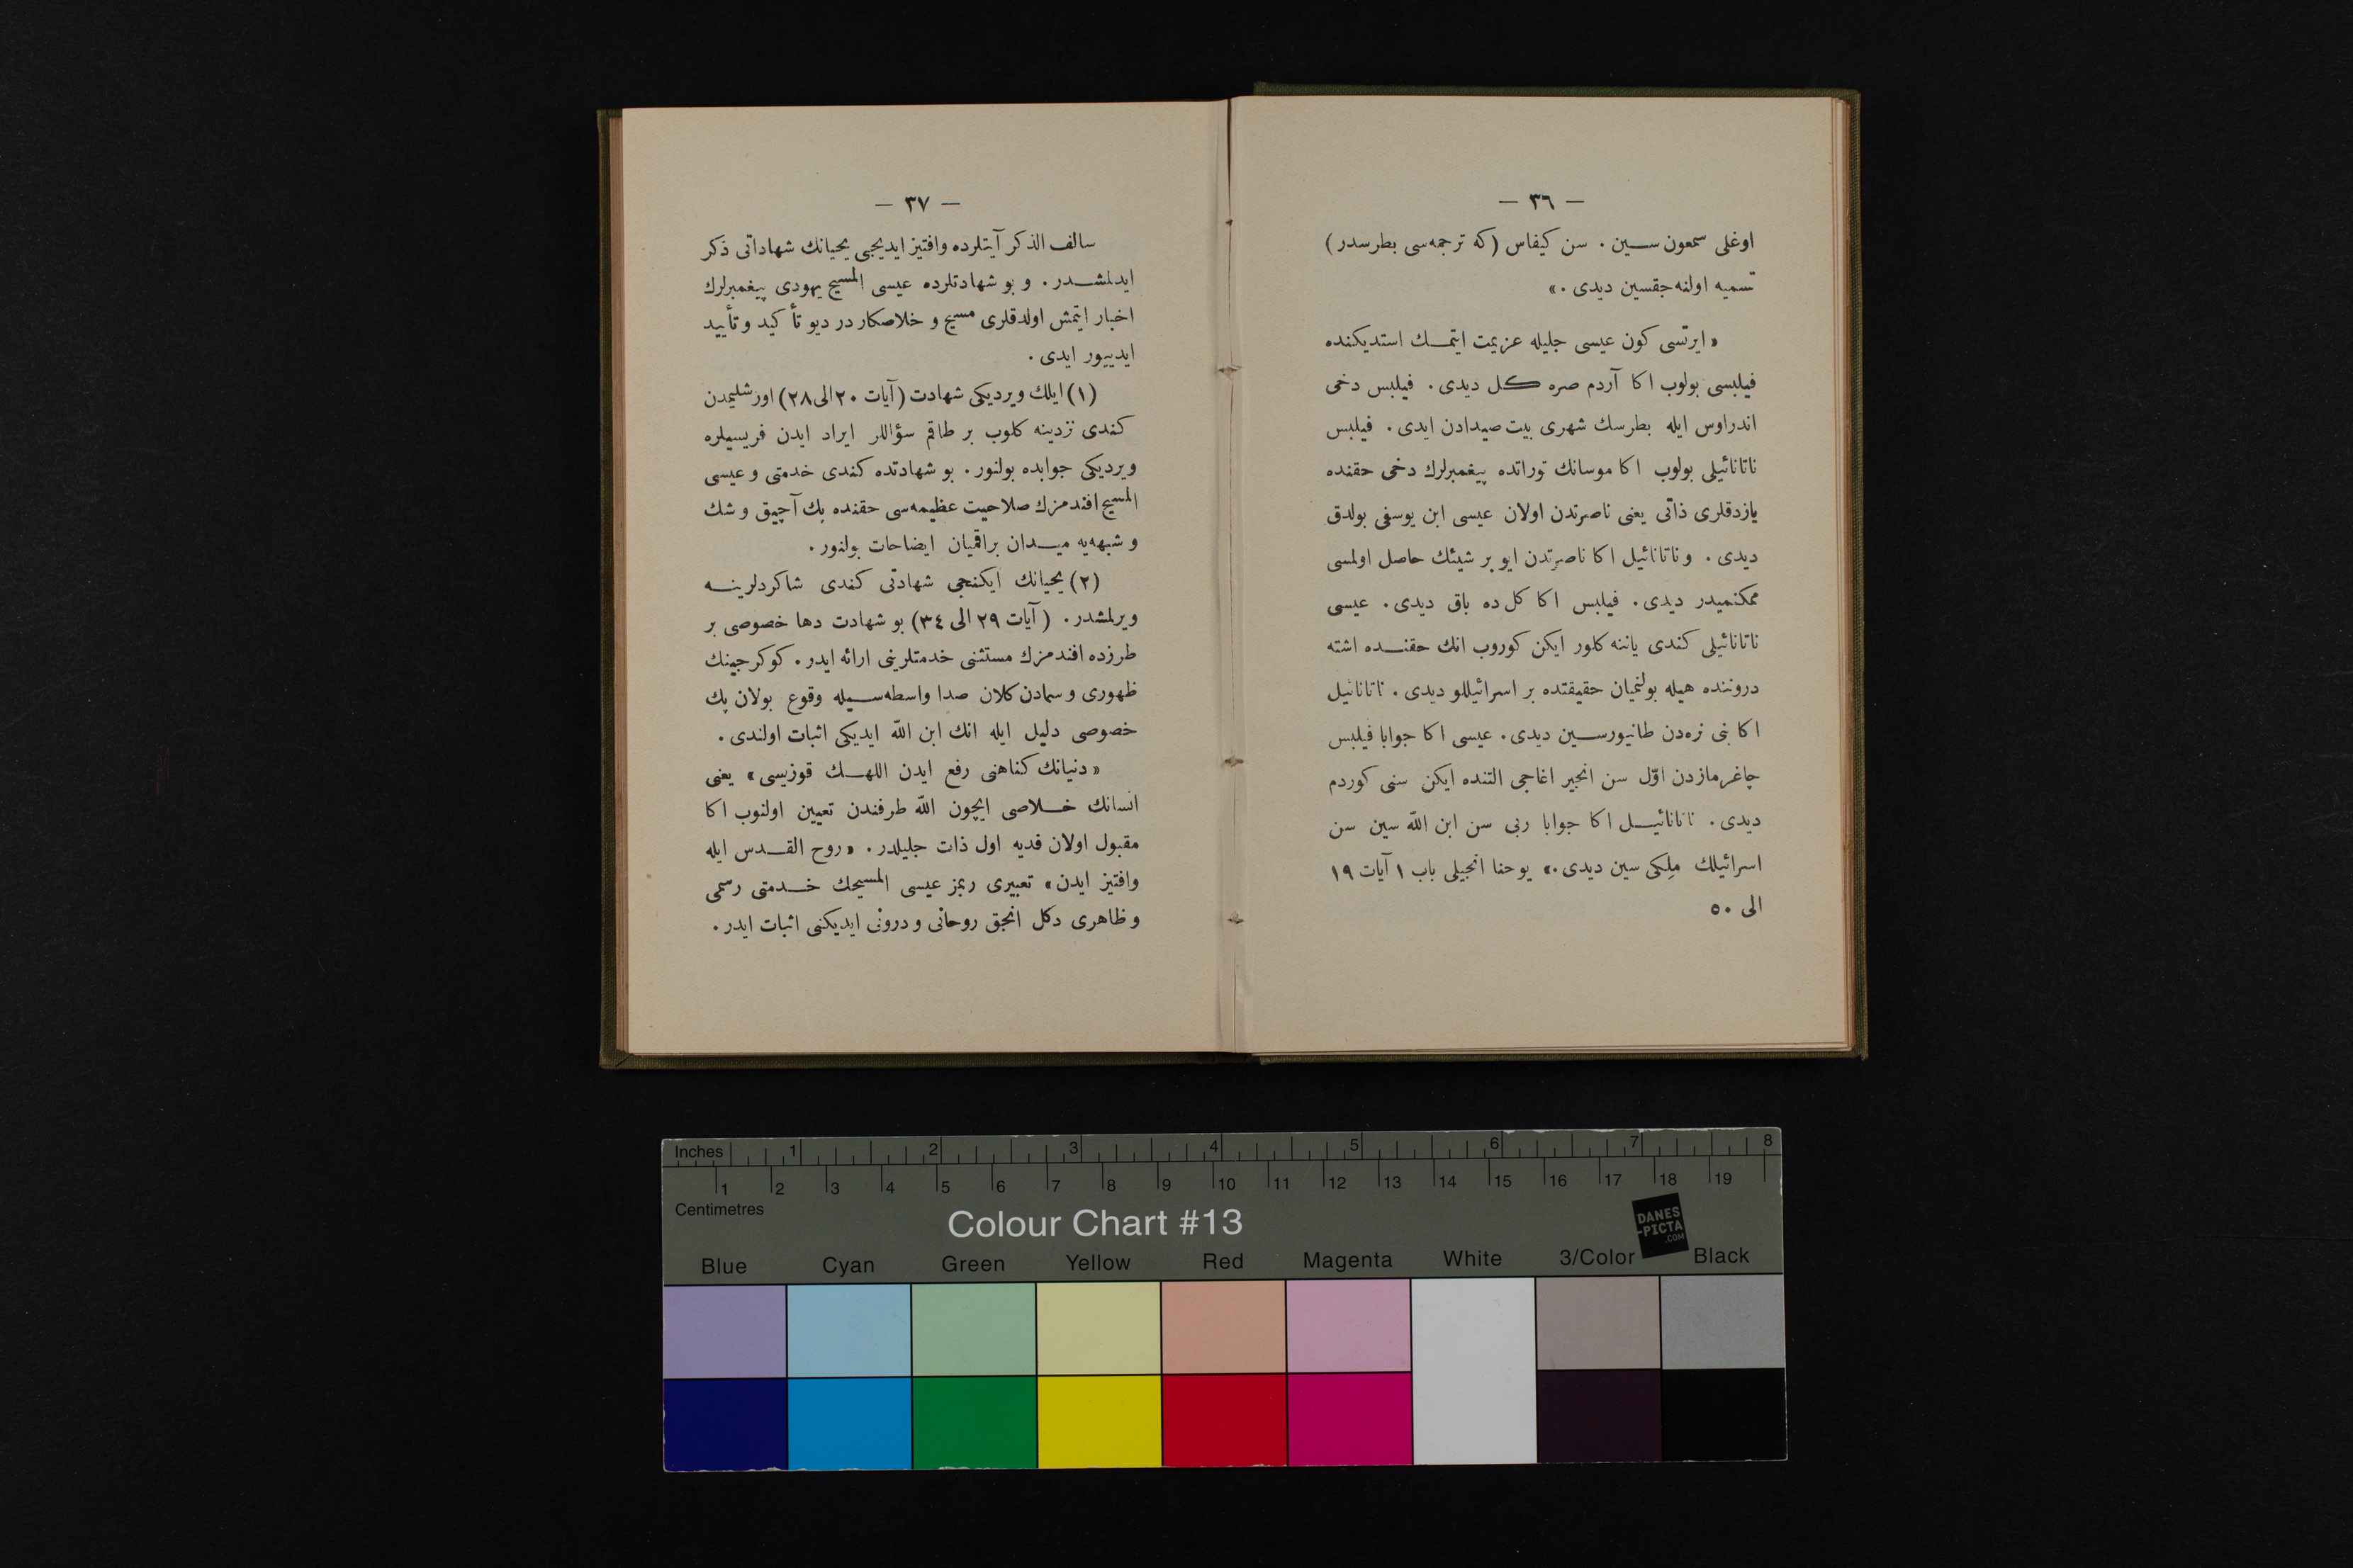 — ٣٦ —
اوغلی سمعون سـین . سن کیفاس (که ترجمه‌سی بطرسدر)
تسمیه اولنه‌جقسین دیدی .»
« ایرتسی کون عیسی جلیله عزیمت ایتمـك استدیکنده
فیلبسی بولوب اکا آردم صره کل دیدی . فیلبس دخی
اندراوس ایله بطرسك شهری بیت صیدادن ایدی . فیلبس
ناتانائیلی بولوب اکا موسانك توراتده پیغمبرلرك دخی حقنده
یازدقلری ذاتی یعنی ناصرتدن اولان عیسی ابن یوسفی بولدق
دیدی . و ناتانائیل اکا ناصرتدن ایو بر شیئك حاصل اولمسی
ممکنمیدر دیدی . فیلبس اکا کل ده باق دیدی . عیسی
ناتانائیلی کندی یاننه کلور ایکن کوروب انك حقنـده اشته
دروننده هیله بولنمیان حقیقتده بر اسرائیللو دیدی . ناتانائیل
اکا بنی نره‌دن طانیورسـین دیدی . عیسی اکا جوابا فیلبس
چاغرمازدن اوّل سن انجیر اغاجی التنده ایکن سنی کوردم
دیدی . ناتانائیـل اکا جوابا ربی سن ابن اللّه سین سن
اسرائیلك ملِکی سین دیدی .» یوحنا انجیلی باب ١ آیات ١٩
الی ٥٠
— ٣٧ —
سالف الذکر آیتلرده وافتیز ایدیجی یحیانك شهاداتی ذکر
ایدلمشـدر . و بو شهادتلرده عیسی المسیح یهودی پیغمبرلرك
اخبار ایتمش اولدقلری مسیح و خلاصکار در دیو تأکید و تأیید
ایدییور ایدی .
(١) ایلك ویردیکی شهادت (آیات ٢٠ الی ٢٨) اورشلیمدن
کندی نزدینه کلوب بر طاقم سؤاللر ایراد ایدن فریسیلره
ویردیکی جوابده بولنور . بو شهادتده کندی خدمتی و عیسی
المسیح افندمزك صلاحیت عظیمه‌سی حقنده پك آچیق و شك
و شبهه‌یه میـدان براقمیان ایضاحات بولنور .
(٢) یحیانك ایکنجی شهادتی کندی شاکردلرینـه
ویرلمشدر . (آیات ٢٩ الی ٣٤) بو شهادت دها خصوصی بر
طرزده افندمزك مستثنی خدمتلرینی ارائه ایدر . کوکرجینك
ظهوری و سمادن کلان صدا واسطه‌سـیله وقوع بولان پك
خصوصی دلیل ایله انك ابن اللّه ایدیکی اثبات اولندی .
« دنیانك کناهنی رفع ایدن اللهـك قوزیسی » یعنی
انسانك خـلاصی ایچون اللّه طرفندن تعیین اولنوب اکا
مقبول اولان فدیه اول ذات جلیلدر . « روح القـدس ایله
وافتیز ایدن » تعبیری ربمز عیسی المسیحك خـدمتی رسمی
و ظاهری دکل انجق روحانی و درونی ایدیکنی اثبات ایدر .
Inches 1 2 3 4 5 6 7 8
1 2 3 4 5 6 7 8 9 10 11 12 13 14 15 16 17 18 19
Centimetres
Colour Chart #13
DANES
-PICTA
.COM
Blue Cyan Green Yellow Red Magenta White 3/Color Black